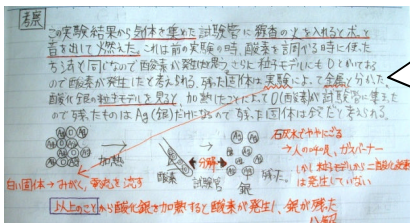 考察
この実験結果から気体を集めた試験管に線香の火を入れるとポッと
音を出して燃えた。これは前の実験の時、酸素を調べる時に使った
方法と同じなので酸素が発生した。さらに粒子モデルにもOとかいてある
ので酸素が発生したと考えられる。残った固体は実験によって金属と分かった。
酸化銀の粒子モデルを見ると、加熱したことによってO(酸素)が試験管に集まった
ので残ったものはAg(銀)だけになるので残った固体は銀だと考えられる。
加熱
酸素
試験管
分解
銀
残った。
石灰水でやや
→人の
ガスバーナー
しかし粒子モデルから二酸化炭素
は発生していない
白い固体→みがく、電流を流す
以上のことから酸化銀を加熱すると酸素が発生し、銀が残った
分解